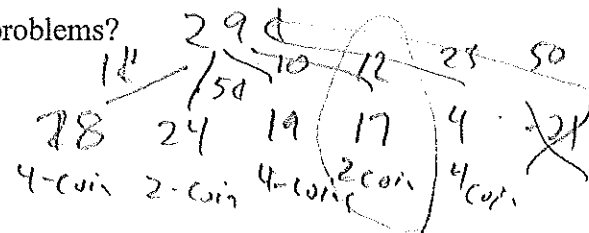 problems?
29¢
1¢ 5¢ 10 12 25 50
28 24 19 17 4 -21
4-coin 2-coin 4-coins 2coin 4coin